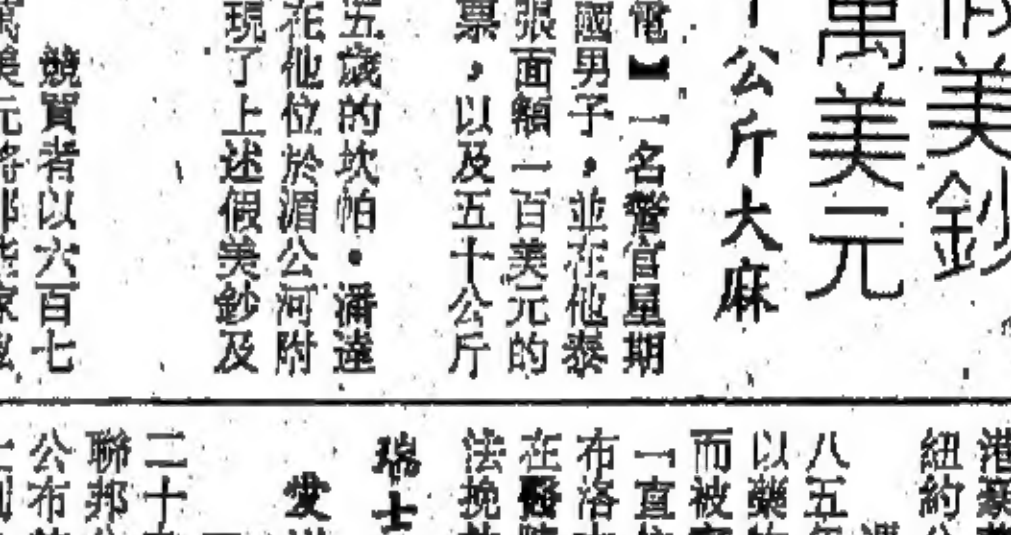 美鈔
萬美元
公斤大麻
電】一名警官星期
國男子，並在他泰
張面額一百美元的
票，以及五十公斤
五歲的坎帕•潘達
在他位於湄公河附
現了上述假美鈔及
競買者以六百七
港
紐約
八五
以藥
而被
一直
布洛
在醫
法挽
瑞士
发
二十
聯邦
公布